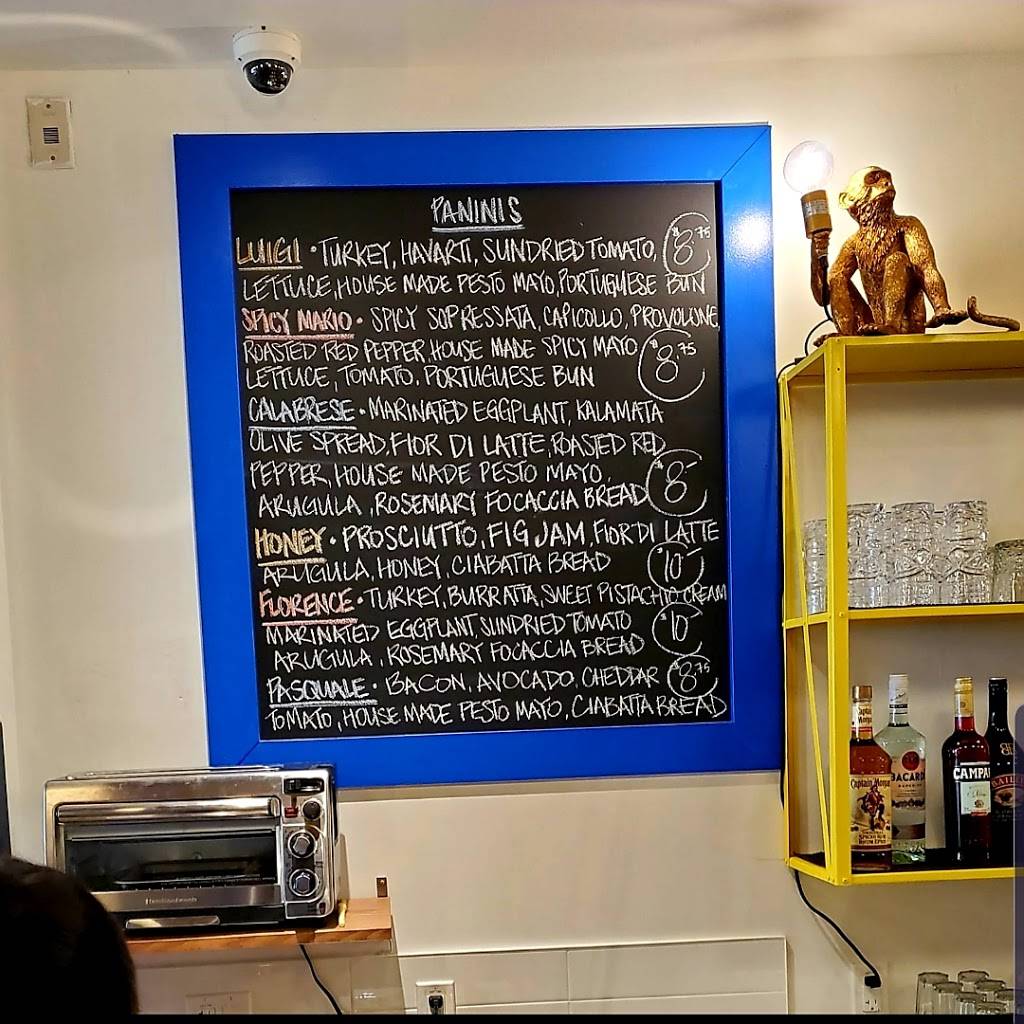 PANINIS
LUIGI • TURKEY, HAVARTI, SUNDRIED TOMATO, $8.75
LETTUCE, HOUSE MADE PESTO MAYO, PORTUGUESE BUN
SPICY MARIO • SPICY SOPRESSATA, CAPICOLLO, PROVOLONE,
ROASTED RED PEPPER, HOUSE MADE SPICY MAYO $8.75
LETTUCE, TOMATO. PORTUGUESE BUN
CALABRESE • MARINATED EGGPLANT, KALAMATA
OLIVE SPREAD, FIOR DI LATTE, ROASTED RED
PEPPER, HOUSE MADE PESTO MAYO,
ARUGULA, ROSEMARY FOCACCIA BREAD $8-
HONEY • PROSCIUTTO, FIG JAM, FIOR DI LATTE
ARUGULA, HONEY, CIABATTA BREAD $10-
FLORENCE • TURKEY, BURRATTA, SWEET PISTACHIO CREAM
MARINATED EGGPLANT, SUNDRIED TOMATO $10-
ARUGULA, ROSEMARY FOCACCIA BREAD
PASQUALE • BACON, AVOCADO, CHEDDAR $8.75
TOMATO, HOUSE MADE PESTO MAYO, CIABATTA BREAD
Captain Morgan
BACARD
CAMPA